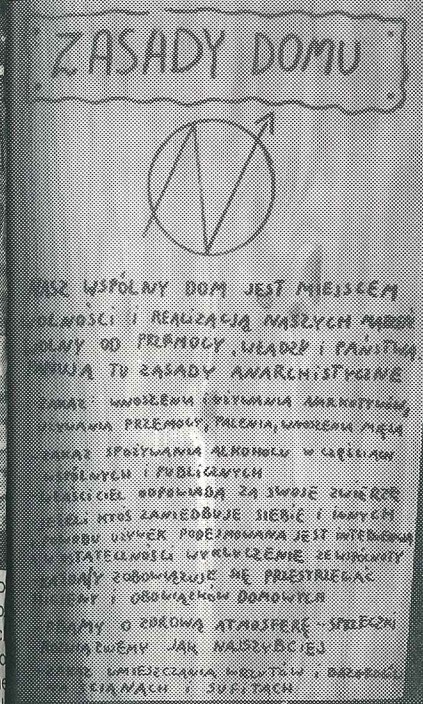 ZASADY DOMU
NASZ WSPÓLNY DOM JEST MIEJSCEM
WOLNOŚCI I REALIZACJĄ NASZYCH MARZEŃ
WOLNY OD PRZEMOCY, WŁADZY I PAŃSTWA.
PANUJĄ TU ZASADY ANARCHISTYCZNE
ZAKAZ WNOSZENIA I UŻYWANIA NARKOTYKÓW,
UŻYWANIA PRZEMOCY, PALENIA, WNOSZENIA MIĘSA
ZAKAZ SPOŻYWANIA ALKOHOLU W CZĘŚCIACH
WSPÓLNYCH I PUBLICZNYCH
WŁAŚCICIEL ODPOWIADA ZA SWOJE ZWIERZĘ
JEŻELI KTOŚ ZANIEDBUJE SIEBIE I INNYCH
POWODU UŻYWEK PODEJMOWANA JEST INTERWENCJA
A W OSTATECZNOŚCI WYKLUCZENIE ZE WSPÓLNOTY
KAŻDA/Y ZOBOWIĄZUJE SIĘ PRZESTRZEGAĆ
HIGIENY I OBOWIĄZKÓW DOMOWYCH
DBAMY O ZDROWĄ ATMOSFERĘ - SPRZECZKI
ROZWIĄZUJEMY JAK NAJSZYBCIEJ
ZAKAZ UMIESZCZANIA WRZUTÓW I BAZGROŁÓW
NA ŚCIANACH I SUFITACH